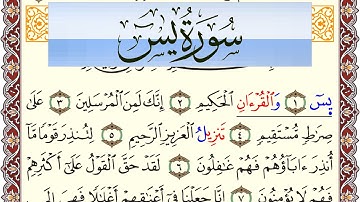 سُورَةُ يس
يسٓ ١ وَالْقُرْءَانِ الْحَكِيمِ ٢ إِنَّكَ لَمِنَ الْمُرْسَلِينَ ٣ عَلَىٰ
صِرَٰطٍ مُّسْتَقِيمٍ ٤ تَنزِيلَ الْعَزِيزِ الرَّحِيمِ ٥ لِتُنذِرَ قَوْمًا مَّا
أُنذِرَ ءَابَآؤُهُمْ فَهُمْ غَٰفِلُونَ ٦ لَقَدْ حَقَّ الْقَوْلُ عَلَىٰٓ أَكْثَرِهِمْ
فَهُمْ لَا يُؤْمِنُونَ ٧ إِنَّا جَعَلْنَا فِىٓ أَعْنَٰقِهِمْ أَغْلَٰلًا فَهِىَ إِلَى